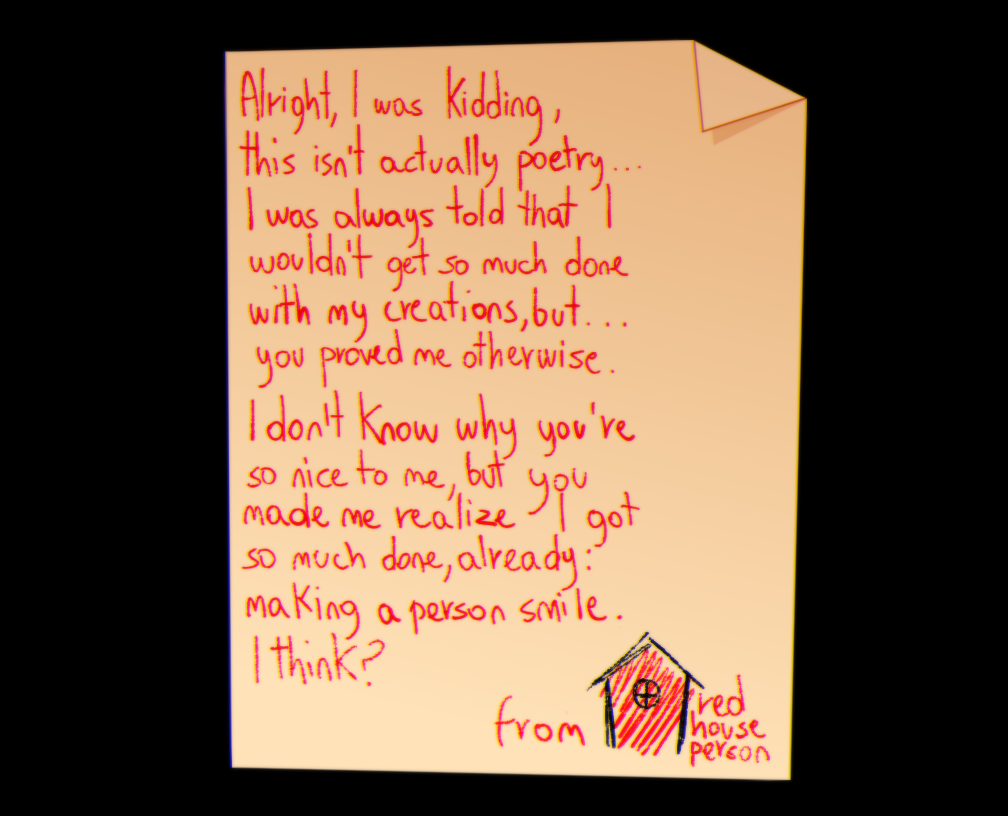 Alright, I was Kidding,
this isn't actually poetry...
I was always told that I
wouldn't get so much done
with my creations, but...
you proved me otherwise.
I don't know why you're
so nice to me, but you
made me realize I got
so much done, already:
making a person smile.
I think?
from
red
house
person